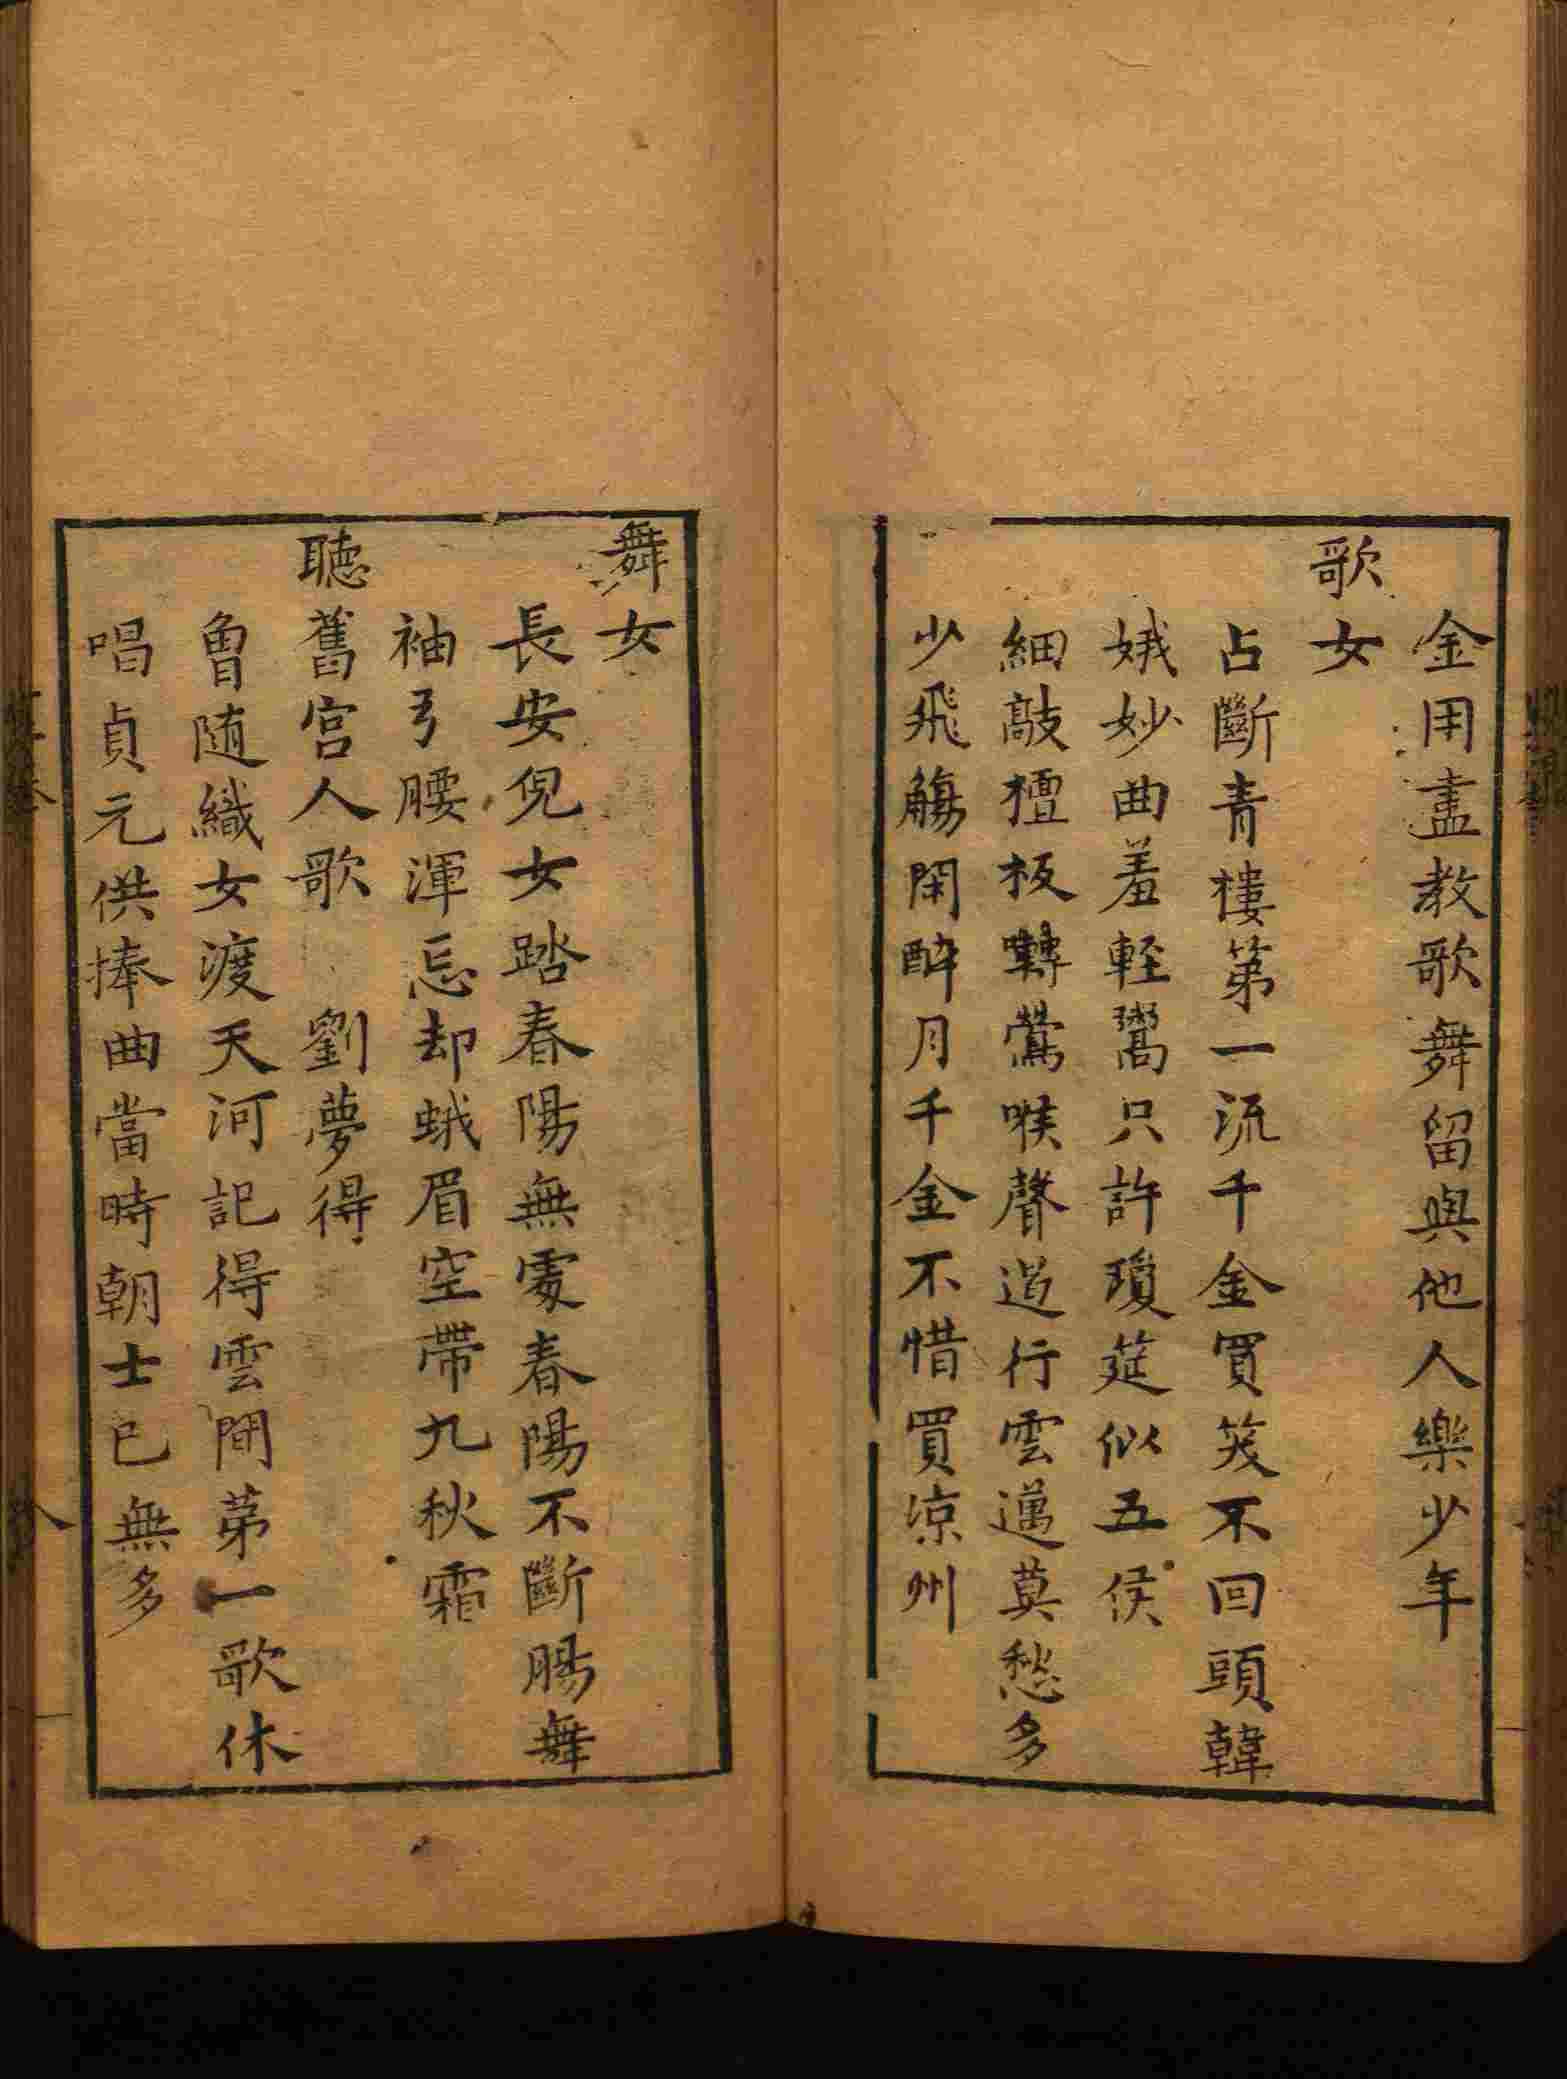 金用盡教歌舞留與他人樂少年
歌女
占斷青樓第一流千金買笑不回頭韓
娥妙曲羞輕鬻只許瓊筵似五侯
細敲檀板囀鶯喉聲遏行雲邁莫愁多
少飛觴閑醉月千金不惜買涼州
舞女
長安兒女踏春陽無處春陽不斷腸舞
袖弓腰渾忘却蛾眉空帶九秋霜
聽舊宮人歌　劉夢得
曾随織女渡天河記得雲間第一歌休
唱貞元供捧曲當時朝士已無多